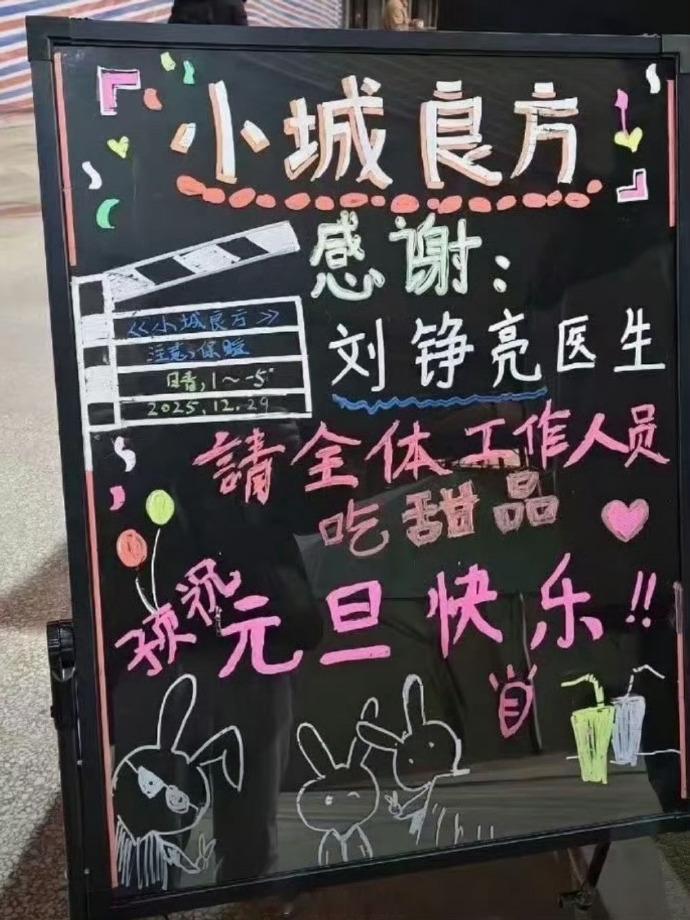 小城良方
感谢:
《小城良方》
注意,保暖
1~-5°
2025.12.29
刘铮亮医生
請全体工作人员
吃甜品
预祝
元旦快乐!!